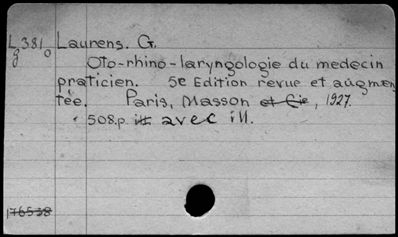 L 381 Laurens. G.
g o
Oto-rhino-laryngologie du medecin
praticien. 5e Edition revue et augmen
tée. Paris, Masson et Cie, 1927.
508.p. ill avec ill.
176538